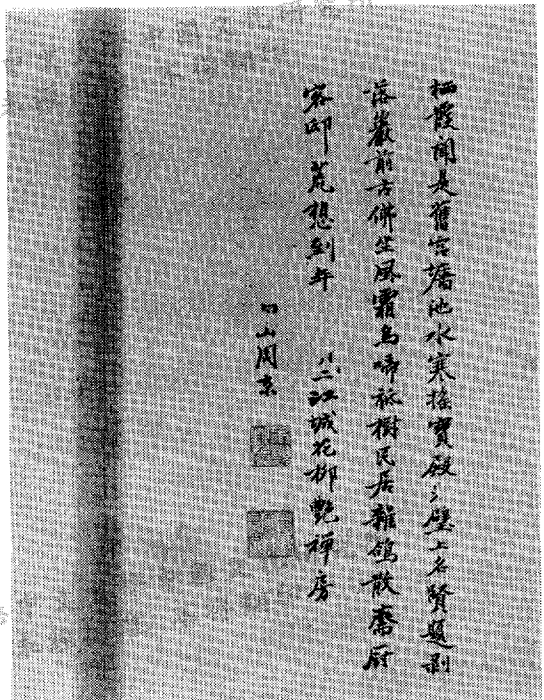 栖霞聞是舊宮牆池水寒搖寶殿壁上名賢題剥
落巖前古佛坐風霜烏啼秋樹民居雜鴿散齋厨
客邸荒想到年江城花柳艷禪房
山周京